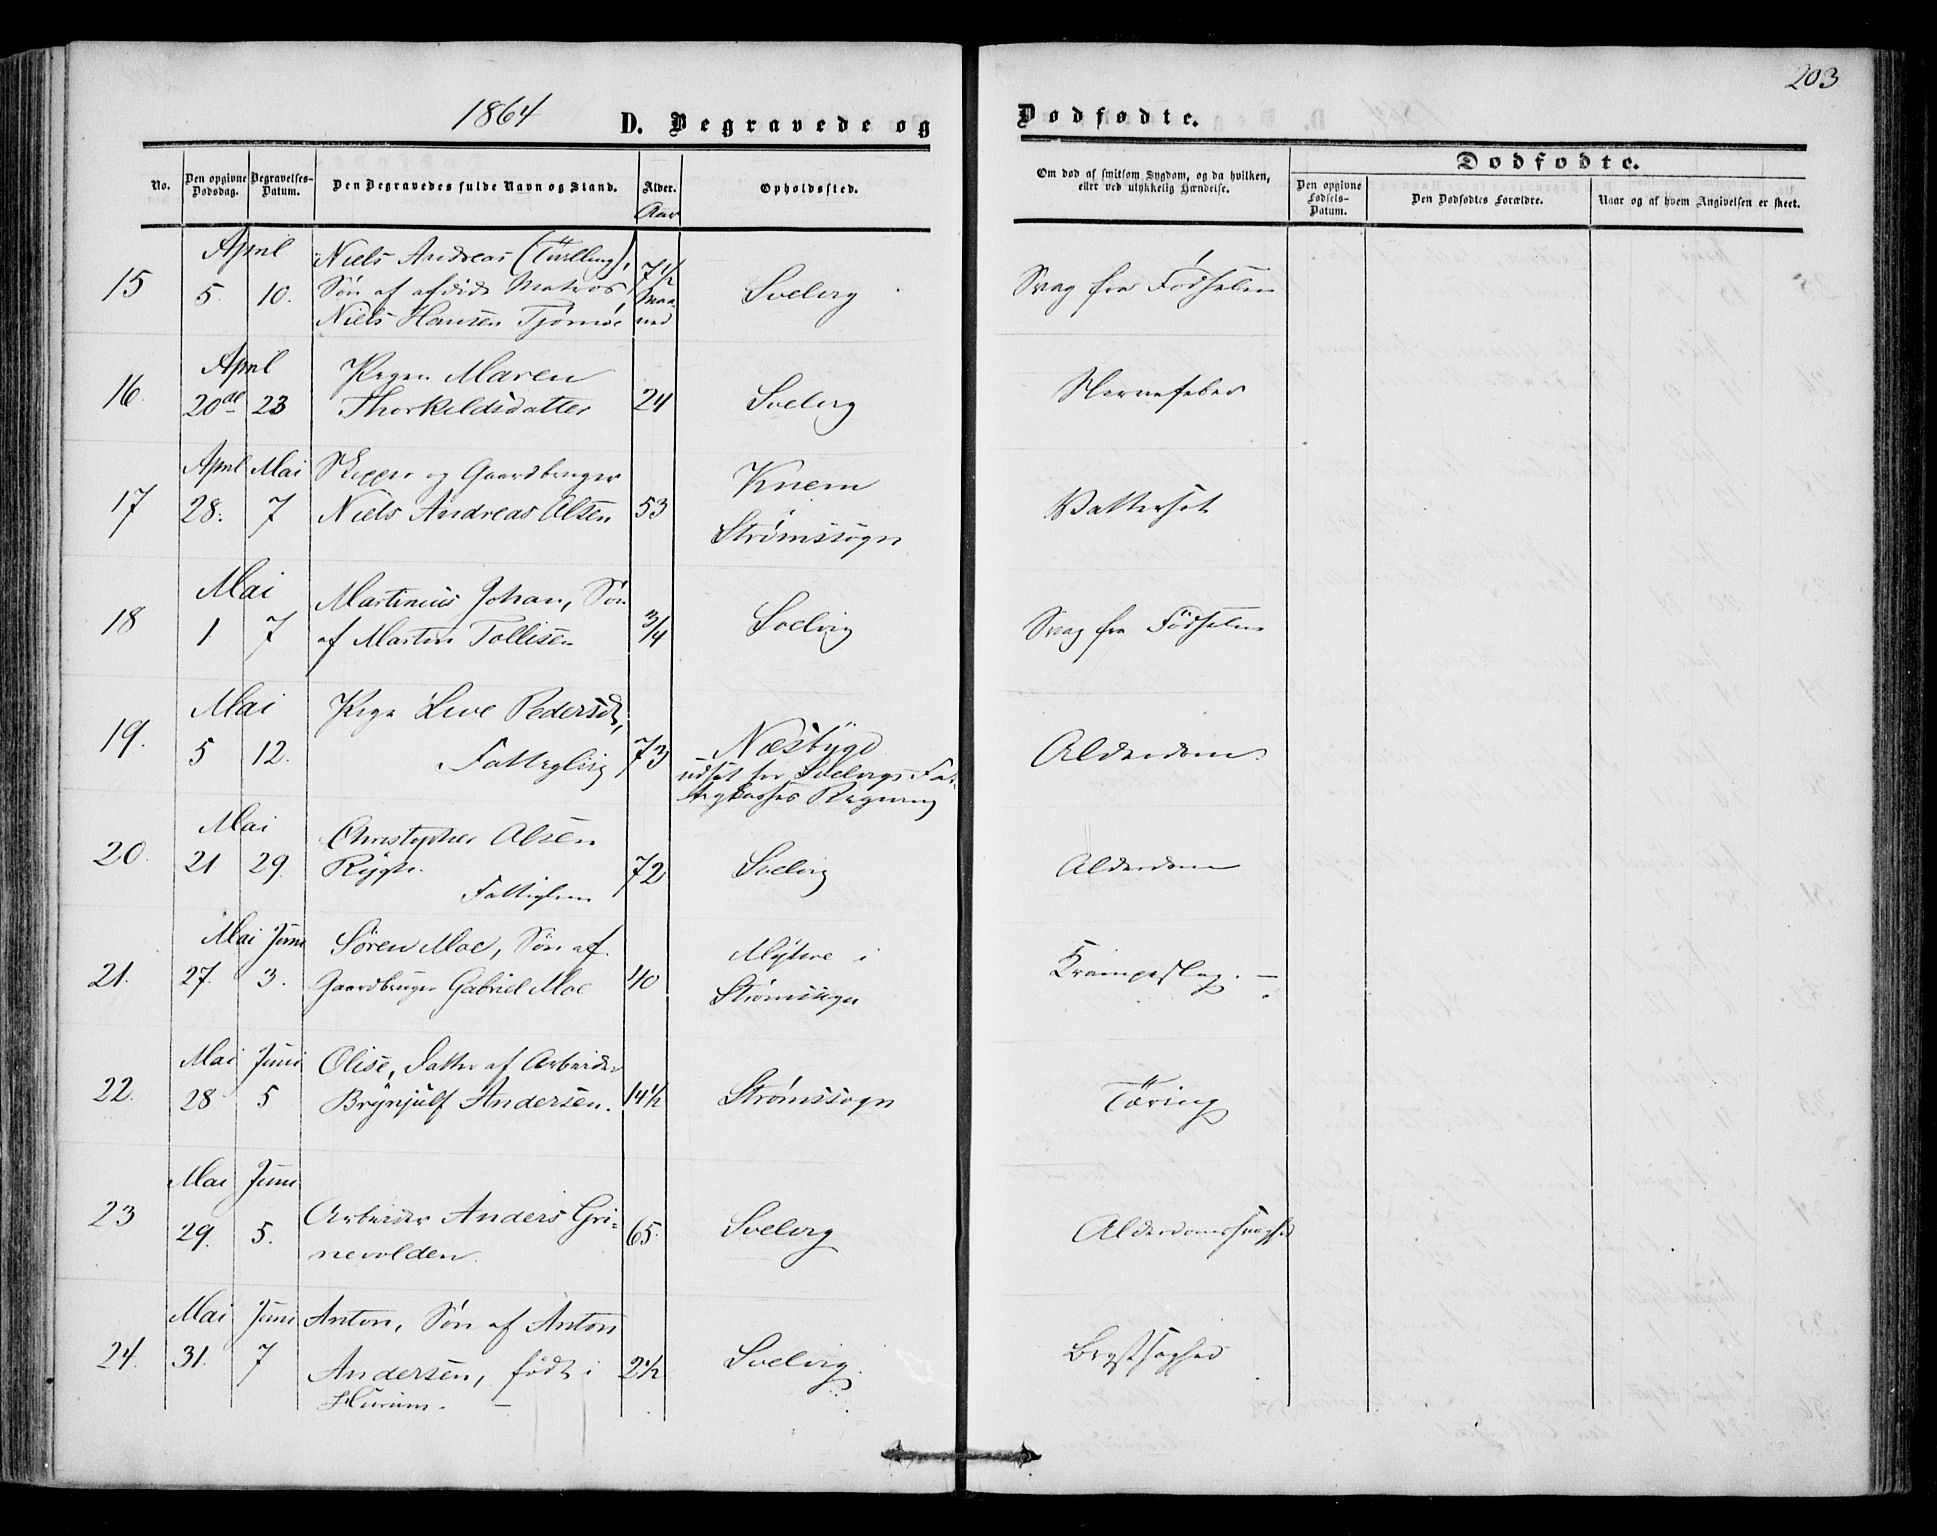 203
1864 D. Begravede og Dødfødte.
No. Den opgivne Dødsdag. Begravelses-Datum. Den Begravedes fulde Navn og Stand. Alder. Opholdssted.
Aar
Om død af smitsom Sygdom, og da hvilken, eller ved ulykkelig Hændelse.
Dødfødte.
Den opgivne Fødsels-Datum. Den Dødfødtes Forældre. Naar og af hvem Angivelsen er skeet.
April Niels Andreas (Tvilling), 7 1/2
15 5. 10. Søn af afdøde Matros Maa- Svelvig Svag fra Fødselen
Niels Hansen Tjømøe ned
April Pigen Maren
16. 20de 23 Thorkeldsdatter 24 Svelvig Nervefeber
April Mai Skipper og Gaardbruger Knem
17 28. 7 Niels Andreas Olsen 53 Strømssogn Vattersot
Mai Martinius Johan, Søn
18 1 7 af Martin Tollisen 3/4 Svelvig Svag fra Fødselen
Mai Pige Live Pedersd,
19. 5 12. Fattiglig 73 Næsbygd Alderdom
udsat for Svelvigs Fat-
tigkasses Regning
Mai Christopher Olsen
20. 21 29. 72 Svelvig Alderdom
Fattiglem
Mai Juni Søren Moe, Søn af
21. 27. 3. Gaardbruger Gabriel Moe 40 i Strømssogn Krampeslag. —
Mai Juni Olise, Datter af Arbeider
22. 28 5 Brynjulf Andersen. 14 1/2 Strømssogn Tæring
Mai Juni
23 29. 5. Arbeider Anders Gri- 65. Svelvig Alderdomssvaghed
nevolden.
Mai Juni Anton, Søn af Anton
24. 31. 7 Andersen, født i 2 1/2 Svelvig Brystsyghed
Hurum. —